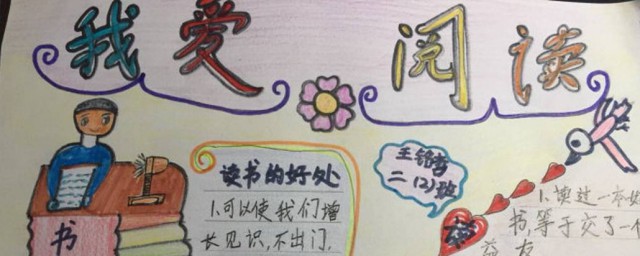 我爱阅读
读书的好处
1.可以使我们增
长见识,不出门.
王铭哲
二(2)班
1.读过一本好
书,等于交了一个
益友
读
书